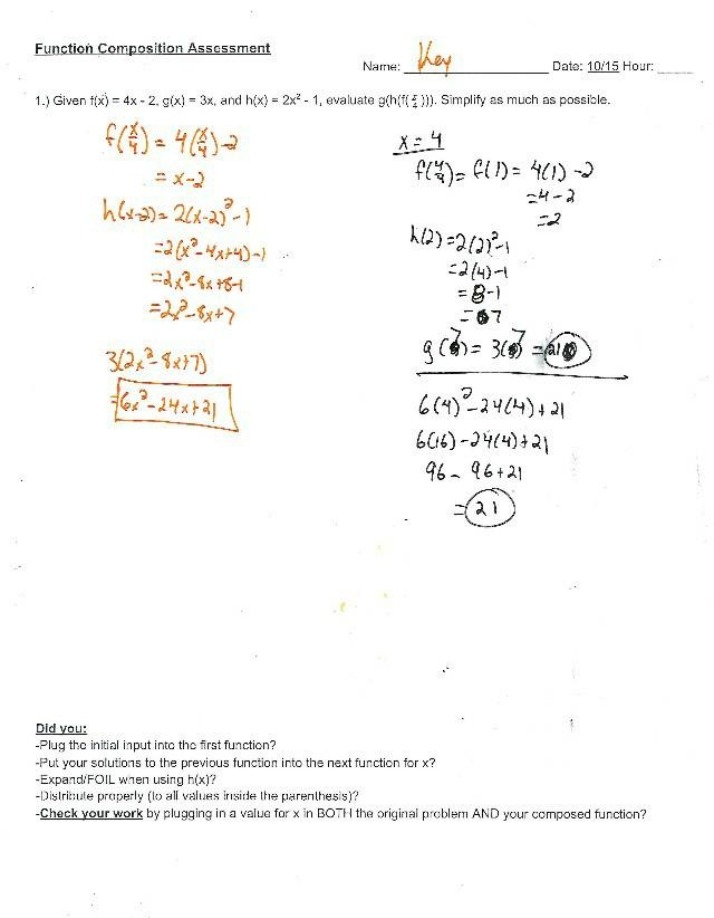 Function Composition Assessment
Name: Key Date: 10/15 Hour:
1.) Given f(x) = 4x - 2, g(x) = 3x, and h(x) = 2x² - 1, evaluate g(h(f(x/4))). Simplify as much as possible.
f(x/4) = 4(x/4)-2
= x-2
h(x-2) = 2(x-2)²-1
=2(x²-4x+4)-1
=2x²-8x+8-1
=2x²-8x+7
3(2x²-8x+7)
=6x²-24x+21
x = 4
f(4/4) = f(1) = 4(1) -2
=4-2
=2
h(2) = 2(2)²-1
=2(4)-1
= 8-1
= 7
g(7) = 3(7) = 21
6(4)²-24(4)+21
6(16)-24(4)+21
96 - 96+21
= 21
Did you:
-Plug the initial input into the first function?
-Put your solutions to the previous function into the next function for x?
-Expand/FOIL when using h(x)?
-Distribute properly (to all values inside the parenthesis)?
-Check your work by plugging in a value for x in BOTH the original problem AND your composed function?